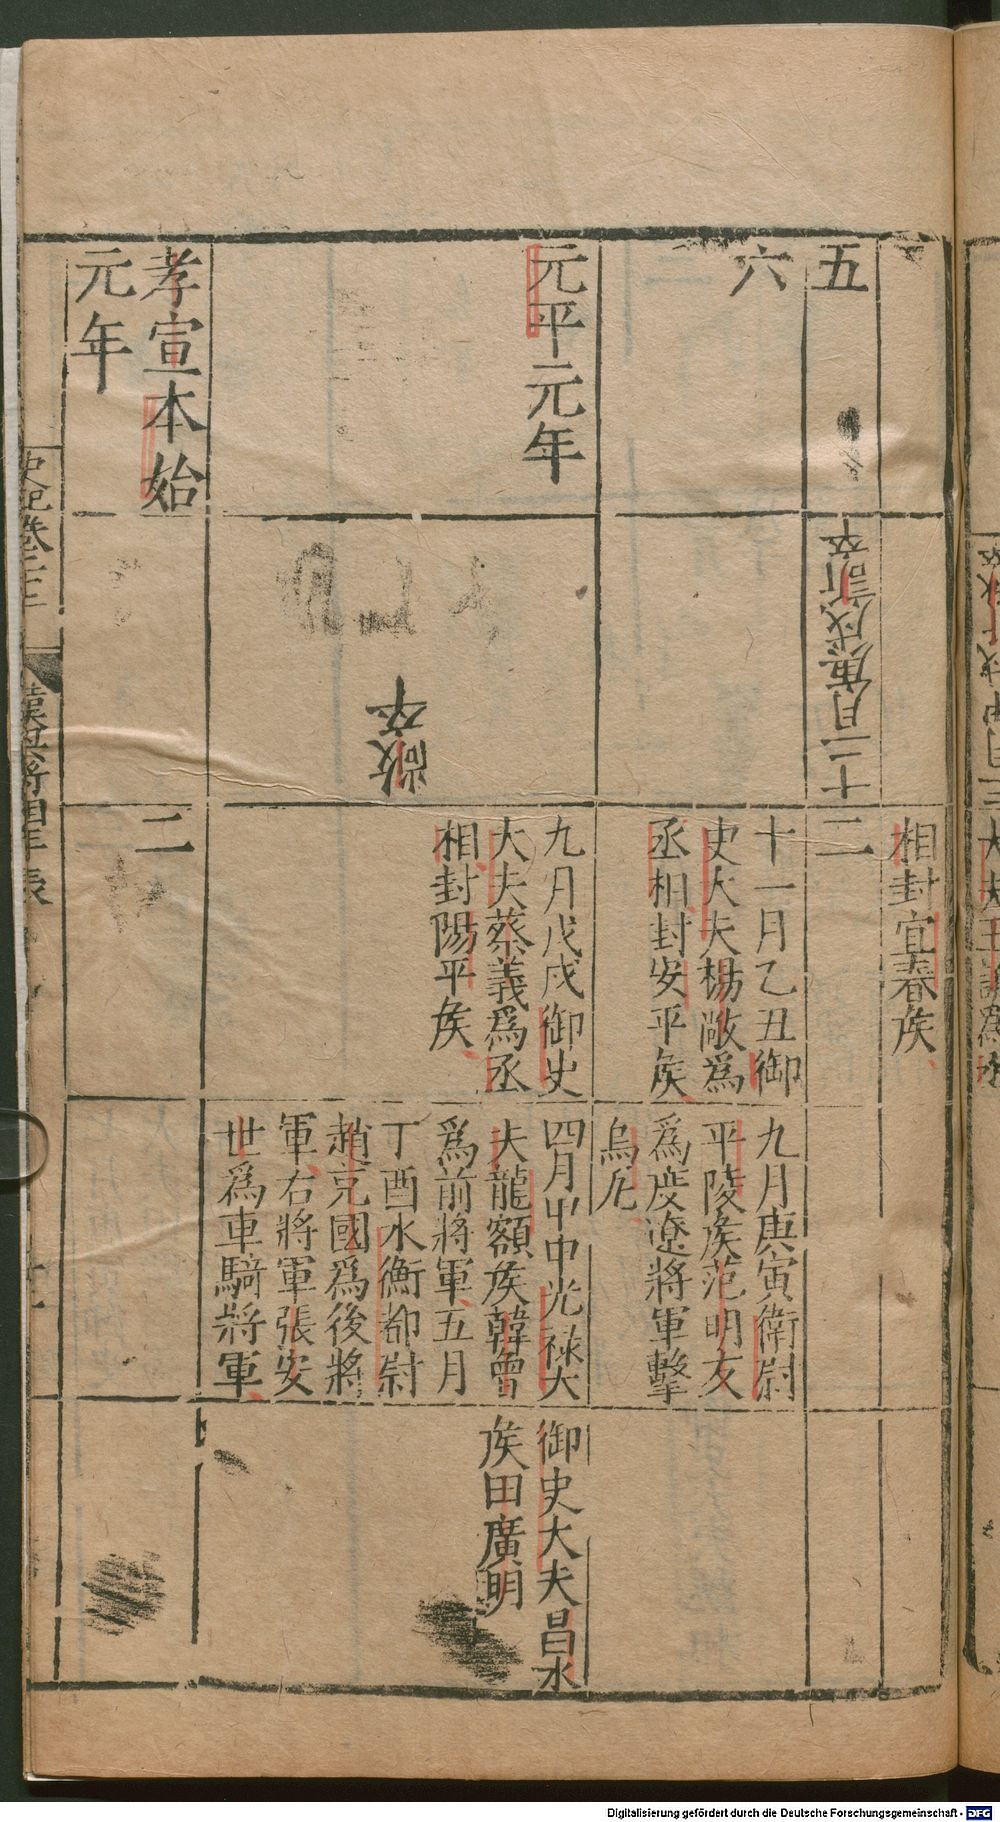 相封宜春矦
五
十二月庚戌訢卒
二
六
十一月乙丑御
史大夫楊敞爲
丞相封安平矦
九月庚寅衛尉
平陵矦范明友
爲度遼將軍擊
烏丸
元平元年
敞卒
九月戊戌御史
大夫蔡義爲丞
相封陽平矦
四月甲申光祿大
夫龍額矦韓曾
爲前將軍五月
丁酉水衡都尉
趙充國爲後將
軍右將軍張安
世爲車騎將軍
御史大夫昌水
矦田廣明
孝宣本始
元年
二
史記卷二十二
漢興將相年表
Digitalisierung gefördert durch die Deutsche Forschungsgemeinschaft - DFG